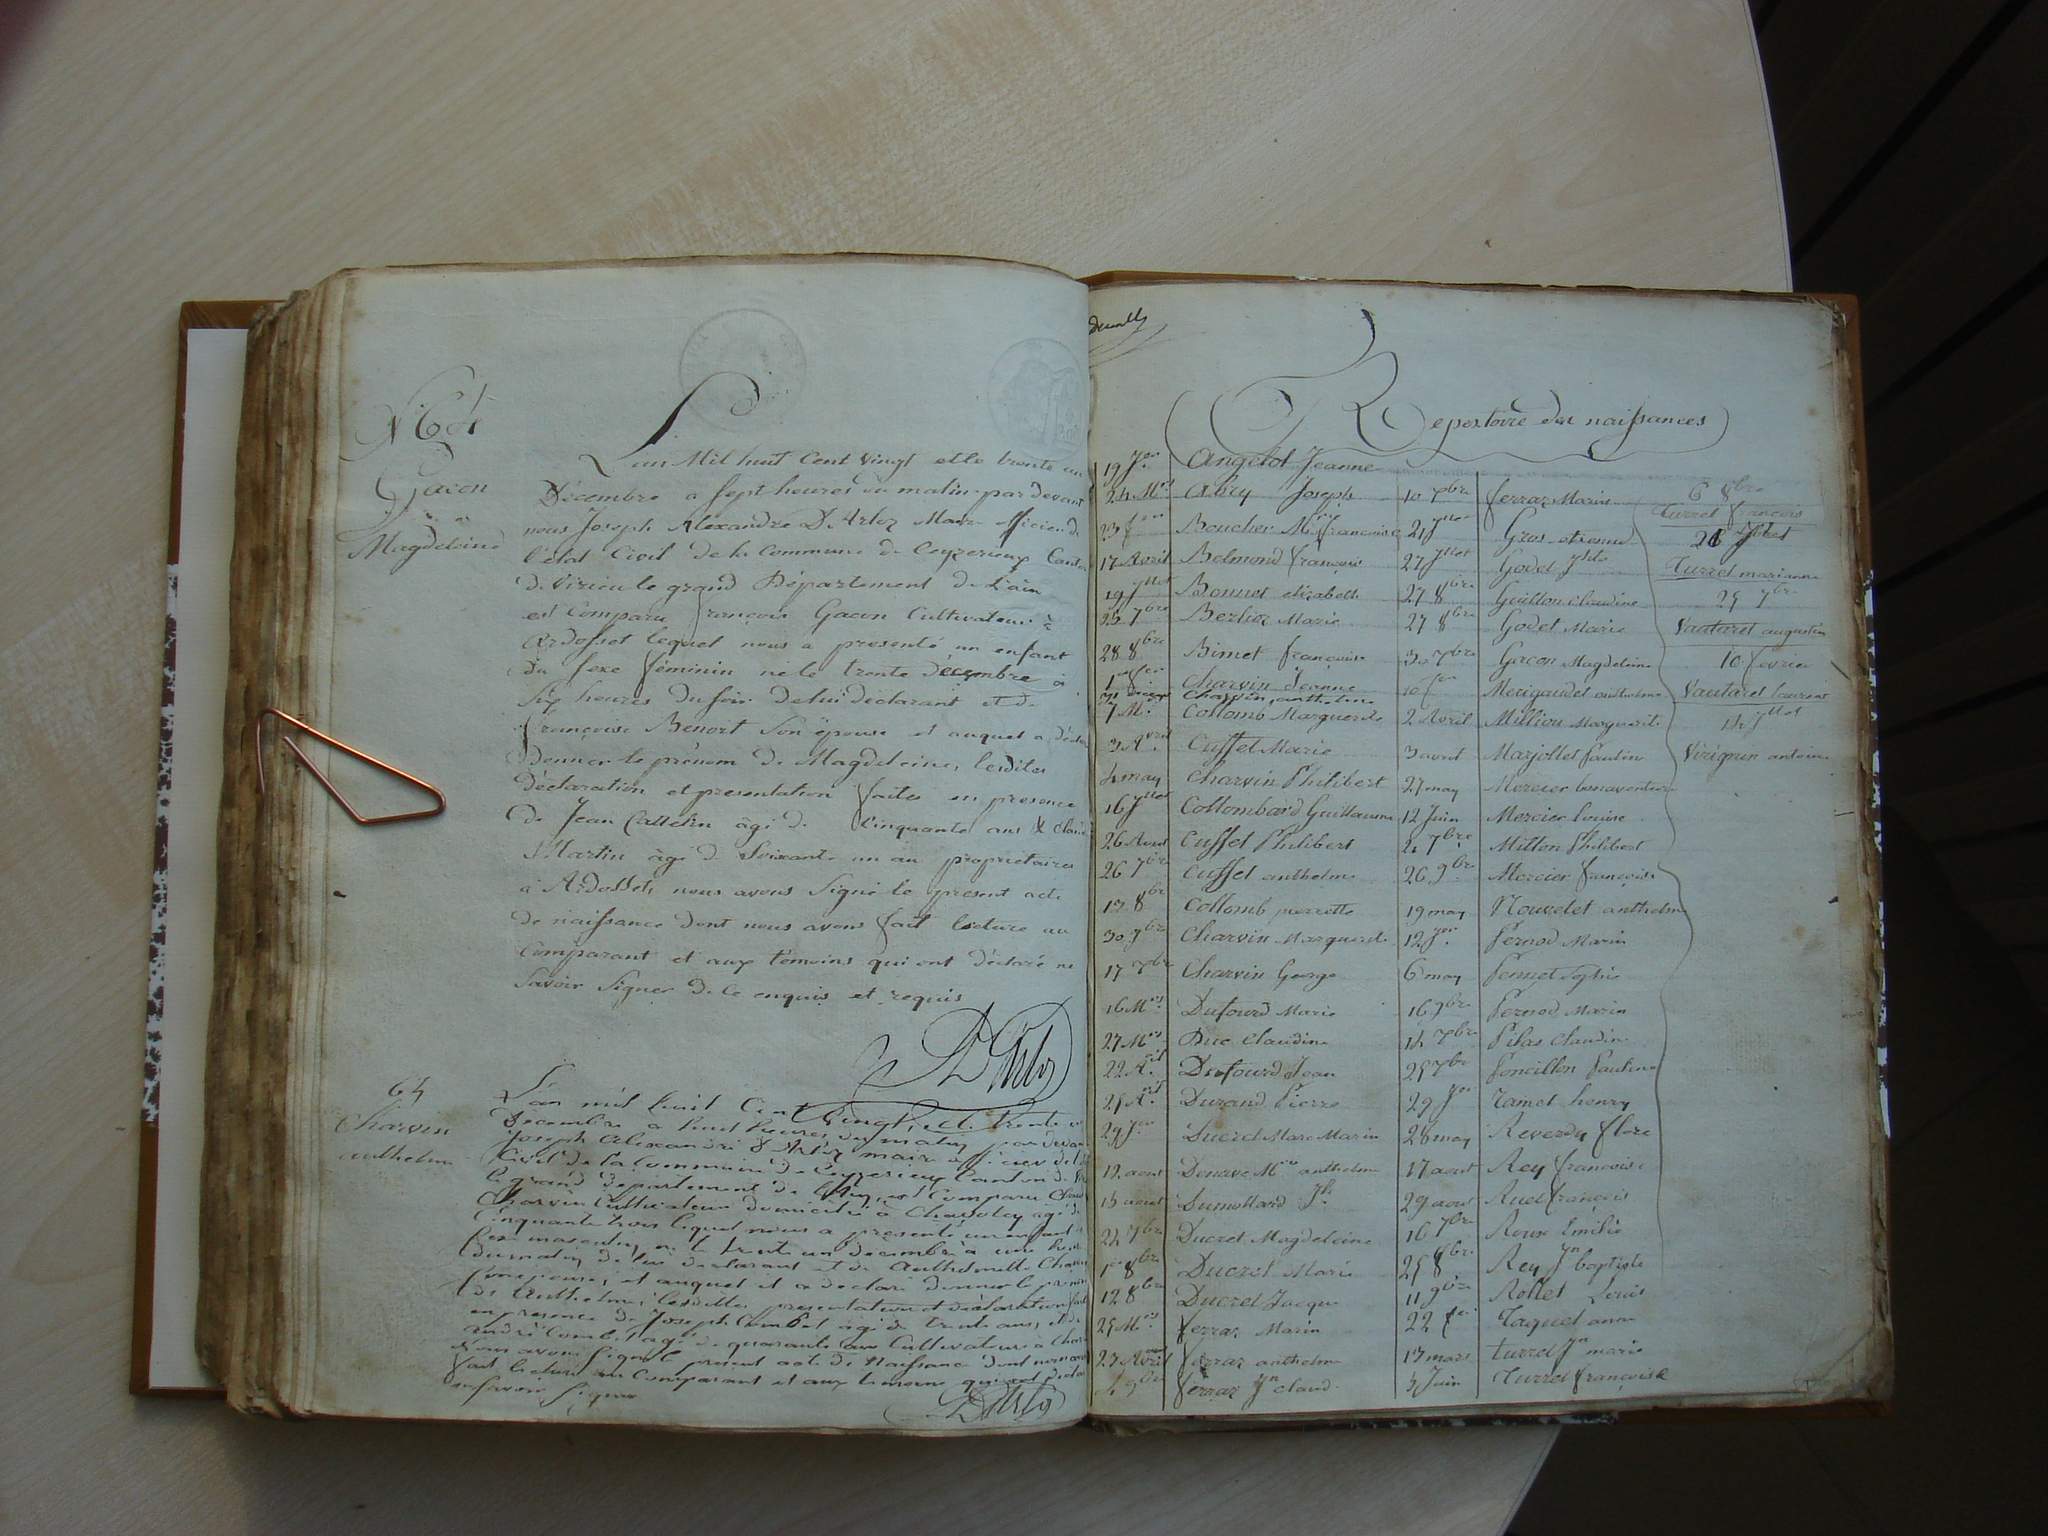 Gacon
Magdeleine
L'an Mil huit Cent vingt et le trente un
Décembre a sept heures du matin par devant
nous Joseph Alexandre D'Arloz Maire officier de
l'état Civil de la Commune de Ceyzerieux Canton
de Virieu le grand Département de L'ain
est Comparu françois Gacon Cultivateur à
Ardosset lequel nous a presenté un enfant
du sexe féminin né le trente décembre à
six heures du soir de lui déclarant et de
françoise Benoit son épouse et auquel a déclaré
Donner le prénom de Magdeleine, lesdites
déclaration et presentation faites en presence
de Jean Callelin âgé de Cinquante ans & Claude
Martin âgé de Soixante un an propriétaires
à Ardosset, nous avons Signé le présent acte
de naissance dont nous avons fait lecture au
Comparant et aux témoins qui ont déclaré ne
Savoir Signer de ce enquis et requis
D'Arloz
64
Charvin
anthelme
L'an mil huit Cent Vingt, et le trente un
Decembre a huit heures du matin par devant
Joseph Alexandre d'Arloz maire officier de l'
Civil de la Commune de Ceyzerieux Canton de
le grand departement de l'Ain, est Comparu Claude
Charvin Cultivateur domicilié à Chavoley âgé de
Cinquante trois lequel nous a presenté un enfant du
sexe masculin, né le trente un decembre à une heure
du matin de lui declarant et de Anthelmette Charvin
son epouse, et auquel il a declaré donner le prenom
de Anthelme, lesdittes presentation et déclaration faites
en presence de Joseph Combet âgé de trente ans, et de
andré Combet agé de quarante ans Cultivateurs à
Nous avons Signé le present acte de Naissance dont nous avons
fait lecture au Comparant et aux temoins qui ont déclaré
ne savoir Signer
D'Arloz
Repertoire des naissances
19 Jer Angelot Jeanne
24 Mrs Abry Joseph 10 7bre ferraz Marin 6 8bre
Turrel françois
23 fer Boucher Mie francoise 21 Jllet Gros etienne 26 Jllet
17 Avril Belmond françois 27 Jllet Godet Jste Turrel marianne
19 Jllet Bonnet elizabeth 27 8bre Guillon Claudine 25 7bre
25 7bre Berlioz Marie 27 8bre Godet Marie Vautaret augustin
28 8bre Bimet francoise 30 Xbre Gacon Magdeleine 10 fevrier
1er fer Charvin Jeanne 10 fer Merigaudet anthelme Vautaret laurent
31 Decbre Charvin anthelme
7 Ms Collomb Marguerite 2 Avril Milliou Marguerite 14 Jllet
3 Avril Cuffet Marie 3 avril Marjollet Pauline Virignin antoine
4 may Charvin Philibert 27 may Mercier bonaventure
16 Jllet Collombard Guillaume 12 Juin Mercier Louise
26 Aout Cuffet Philibert 2 7bre Millon Philibert
26 7bre Cuffet anthelme 26 9bre Mercier françoise
13 8bre Collomb pierrette 19 may Nouvelet anthelme
30 7bre Charvin Marguerite 12 Jer Pernod Marin
17 7bre Charvin George 6 may Pennet Sophie
16 Mrs Dufourd Marie 16 9bre Pernod Marin
27 Mrs Duc Claudine 14 7bre Pilas Claudine
22 Ail Dufourd Jean 25 7bre Poncillon Pauline
25 Ail Durand Pierre 29 Jer Ramel henry
29 Jer Ducret Marc Marin 28 may Reverdy flore
12 aout Deneve Mie anthelme 17 aout Rey francoise
13 aout Dumollard Jh 29 aout Ruel françois
24 7bre Ducret Magdeleine 16 7bre Roux Emilie
1er 8bre Ducret Marie 25 8bre Rey Jn baptiste
12 8bre Ducret Jacque 11 9bre Rollet Louis
25 Mrs ferraz Marin 22 fer Taquet anne
23 Avril ferraz anthelme 13 mars turrel Jn marie
4 9bre ferraz Jn claud 5 Juin Turrel françoise